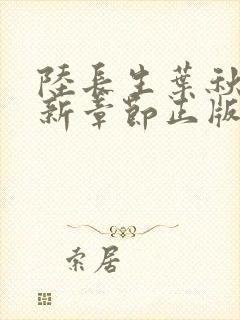 陸長生葉秋
新章節正版
索居